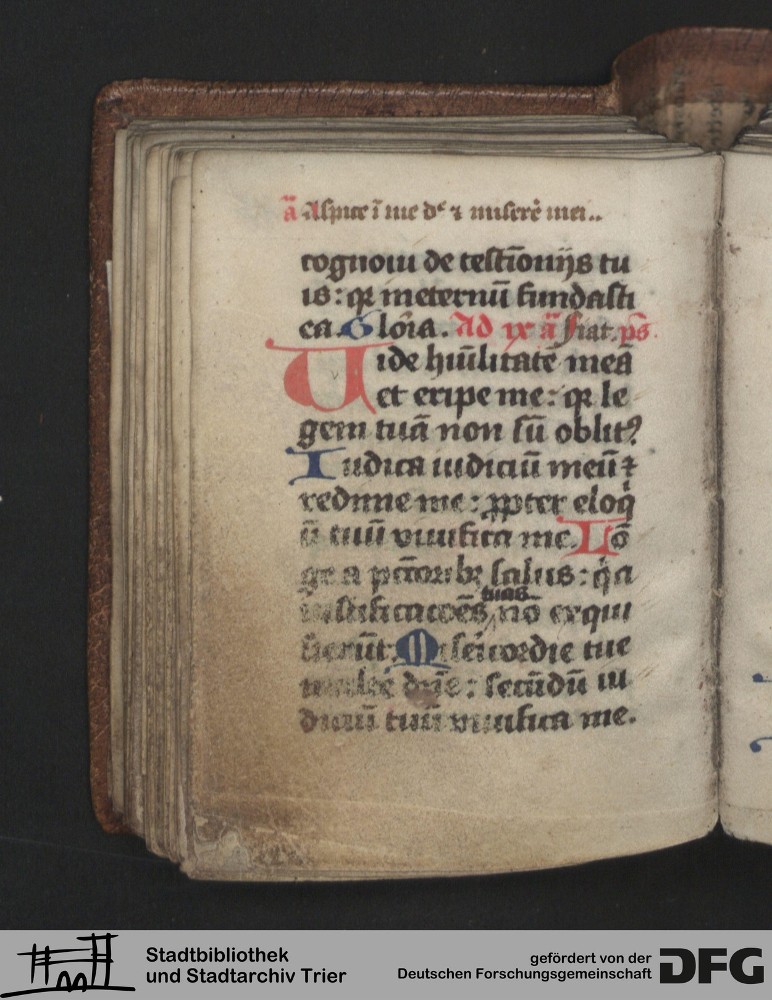 a᷈ Aspice ī me dˢ ⁊ miserē mei..
cognoui de testīonijs tu
is: qꝛ ineternū fundasti
ea. Gloīa. Ad ix ā fiat. ps
Uide hūilitatē meā
et eripe me: qꝛ le
gem tuā non sū oblitꝰ
Iudica iudiciū meū ⁊
redime me: ꝓpter eloq
ū tuū viuifica me. Lō
ge a pctōribꝫ salus: qͥa
iustificatiōēs tuas nō exqui
sierūt: Misēicordie tue
multe dn̄e: secūdū iu
diciū tuū viuifica me.
Stadtbibliothek
und Stadtarchiv Trier
gefördert von der
Deutschen Forschungsgemeinschaft DFG